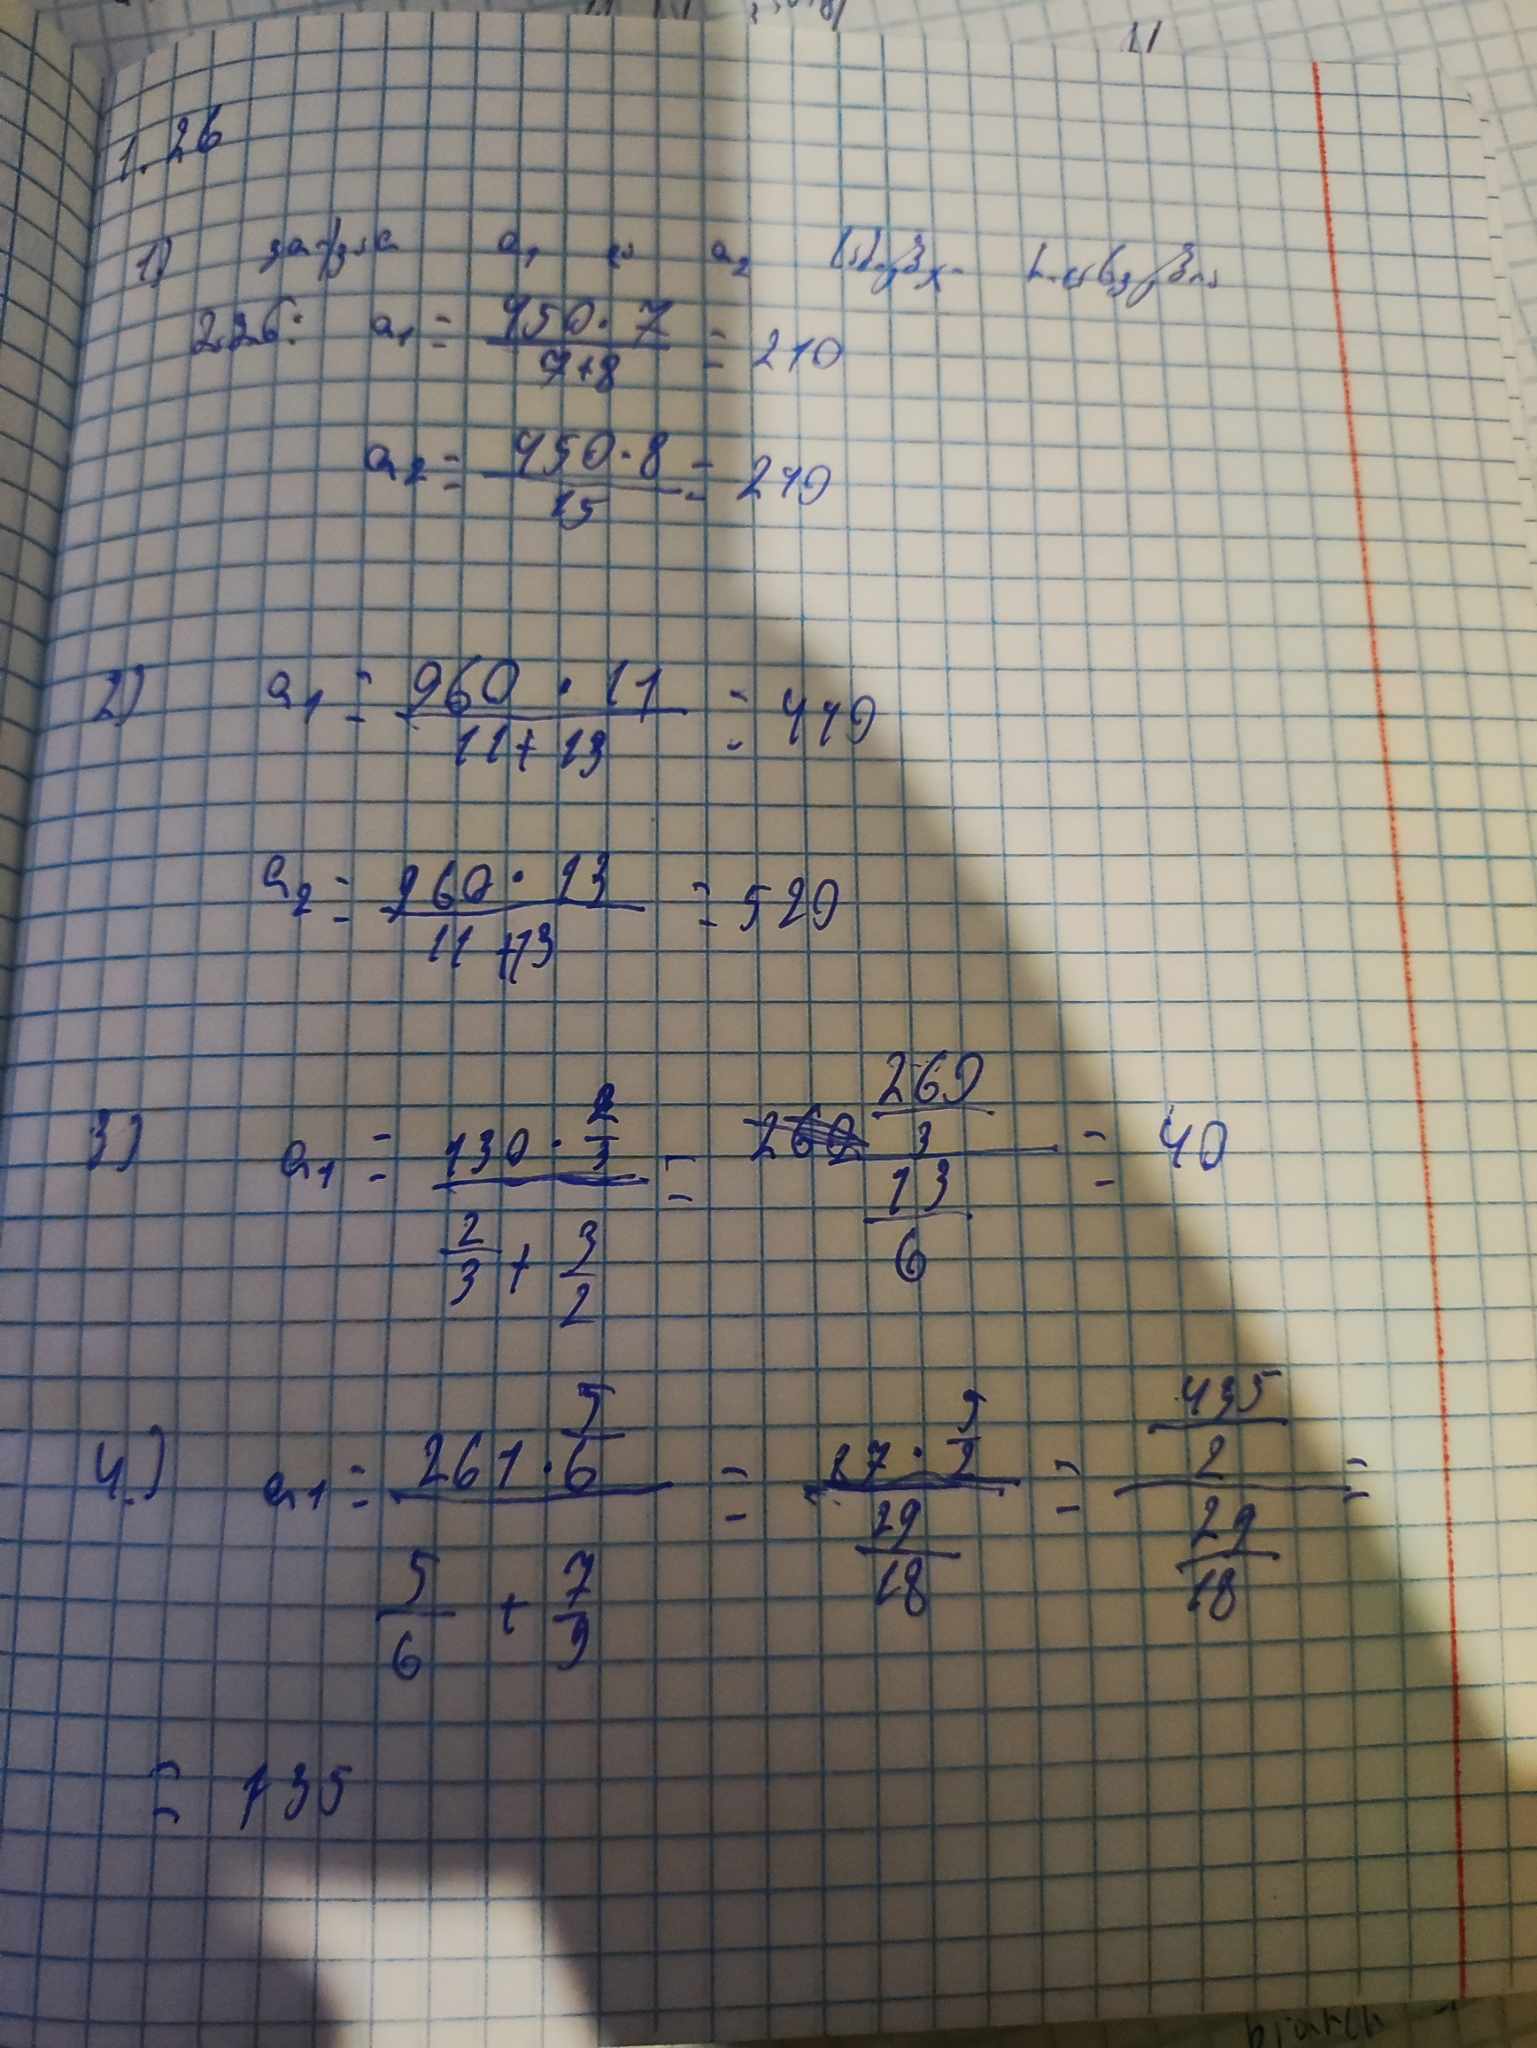 11
1.26
1) a₁ a₂
a₁ = \frac{450 · 7}{7+8} = 210
a₂ = \frac{450 · 8}{15} = 240
2) a₁ = \frac{960 · 11}{11+13} = 440
a₂ = \frac{960 · 13}{11+13} = 520
3) a₁ = \frac{130 · \frac{2}{3}}{\frac{2}{3} + \frac{3}{2}} = \frac{\frac{260}{3}}{\frac{13}{6}} = 40
4.) a₁ = \frac{261 · \frac{5}{6}}{\frac{5}{6} + \frac{7}{9}} = \frac{87 · \frac{5}{2}}{\frac{29}{18}} = \frac{\frac{435}{2}}{\frac{29}{18}} =
= 135